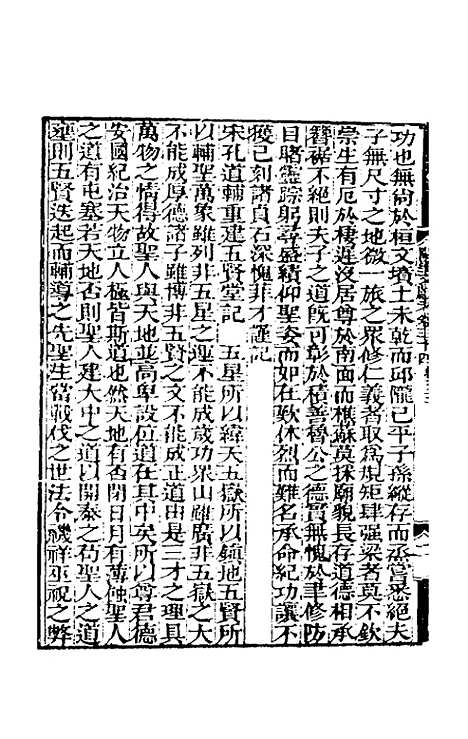 功也無尚於桓文墳土未乾而邱隴已平子孫縱存而烝嘗悉絕夫
子無尺寸之地微一旅之眾修仁義者取為規矩肆强梁者莫不欽
崇生有厄於棲遲沒居尊於南面而樵蘇莫採廟貌長存道德相承
簪裾不絕則夫子之道既可彰於積善魯公之德實無愧於聿修防
目睹靈踪躬尋盛績仰聖姿而如在歎休烈而難名承命紀功讓不
獲已刻諸貞石深愧非才謹記
宋孔道輔重建五賢堂記　五星所以緯天五嶽所以鎮地五賢所
以輔聖萬象雖列非五星之運不能成歲功眾山雖廣非五嶽之大
不能成厚德諸子雖博非五賢之文不能成正道由是三才之理具
萬物之情得故聖人與天地並高卑設位道在其中矣所以尊君德
安國紀治天物立人極皆斯道也然天地有否閉日月有薄蝕聖人
之道有屯塞若天地否則聖人建大中之道以開泰之苟聖人之道
壅則五賢迭起而輔導之先聖生當戰伐之世法令機祥巫祝之弊